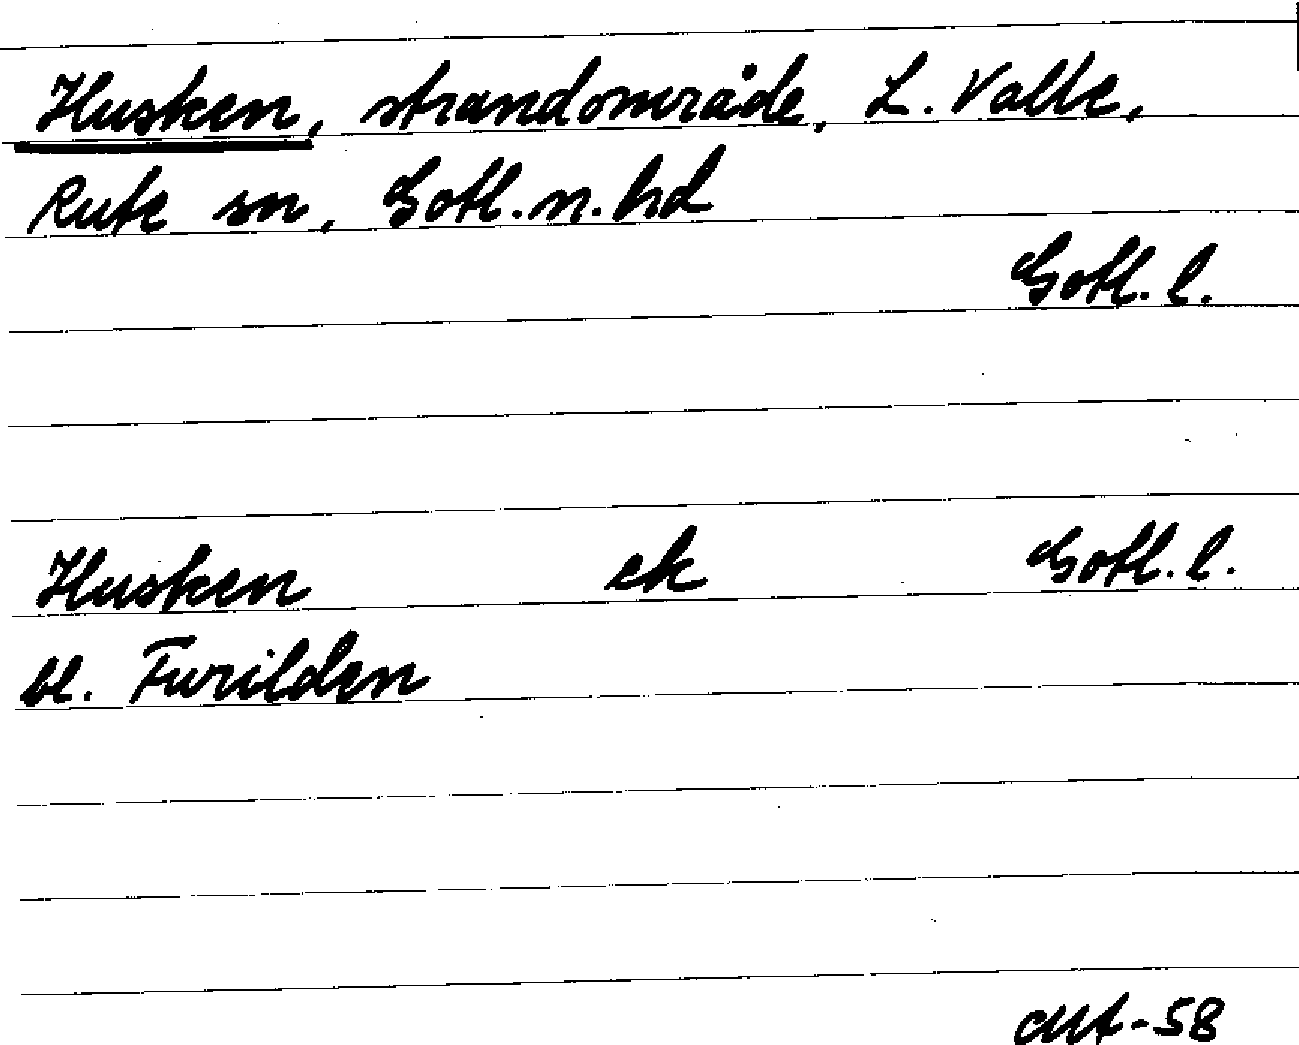 Husken, strandområde, L. Valle,
Rute sn, Gotl. n. hd
Gotl. l.
Husken ek Gotl. l.
bl. Furilden
-58